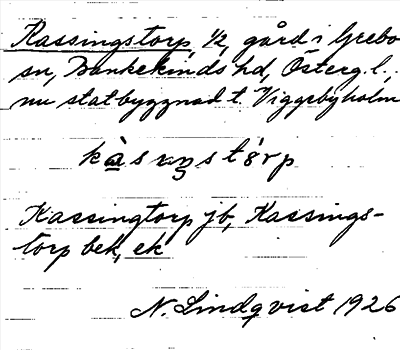 Kassingstorp, 1/2, gård i Grebo
sn, Bankekinds hd, Österg. l.,
nu statbyggnad t. Viggebyholm
kàsıŋstǒrp
Kassingtorp jb, Kassings-
torp bek, ek
N. Lindqvist 1926